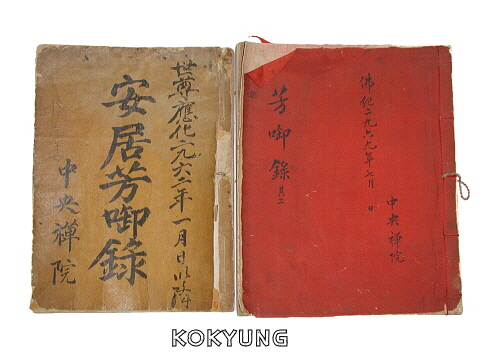 世尊應化二九六二年一月日以降
安居芳啣錄
中央禪院
中央禪院
佛紀二九六九年七月 日
芳啣錄 其二
KOKYUNG